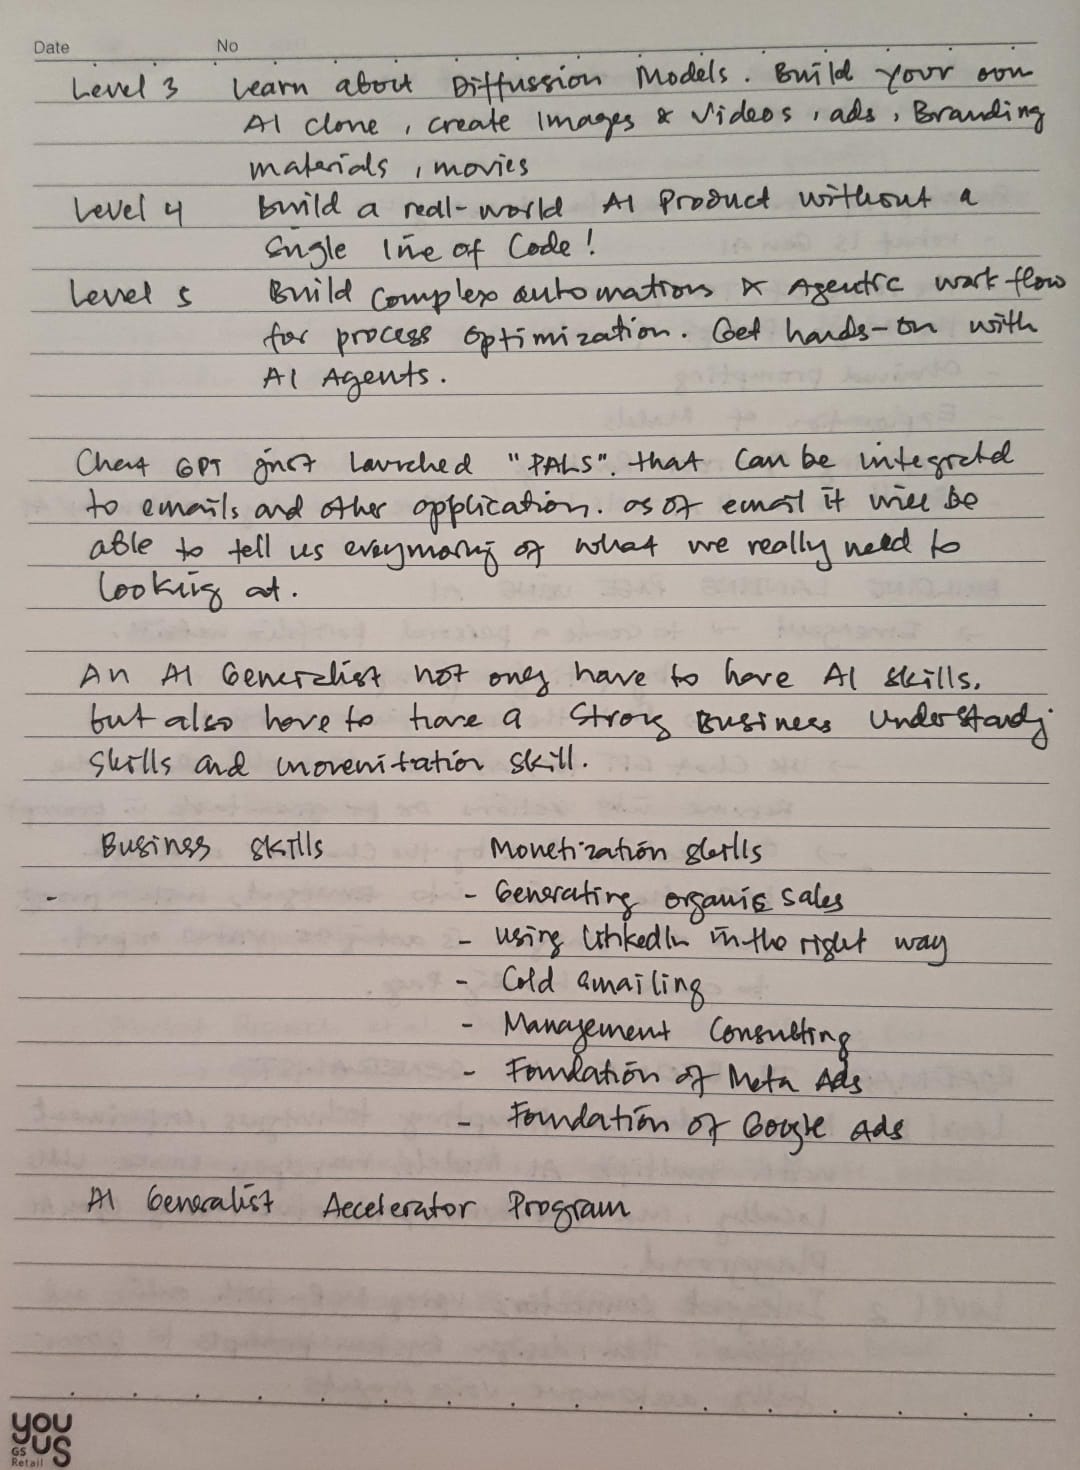 Date No
Level 3 Learn about Diffussion Models. Build your own
AI clone, create Images & Videos, ads, Branding
materials, movies
Level 4 Build a real-world AI Product without a
single line of Code!
Level 5 Build complex automations & Agentic work flow
for process optimization. Get hands-on with
AI Agents.
Chat GPT just launched "PALS". that can be integratd
to emails and other application. as of email it will be
able to tell us of what we really need to
looking at.
An AI Generalist not only have to have AI skills,
but also have to have a strong Business Understandg
skills and skill.
Business skills Monetization skills
-
- Generating organic sales
- using LinkedIn in the right way
- Cold emailing
- Management Consulting
- Foundation of Meta Ads
- Foundation of Google Ads
AI Generalist Accelerator Program
YOU
GS US
Retail